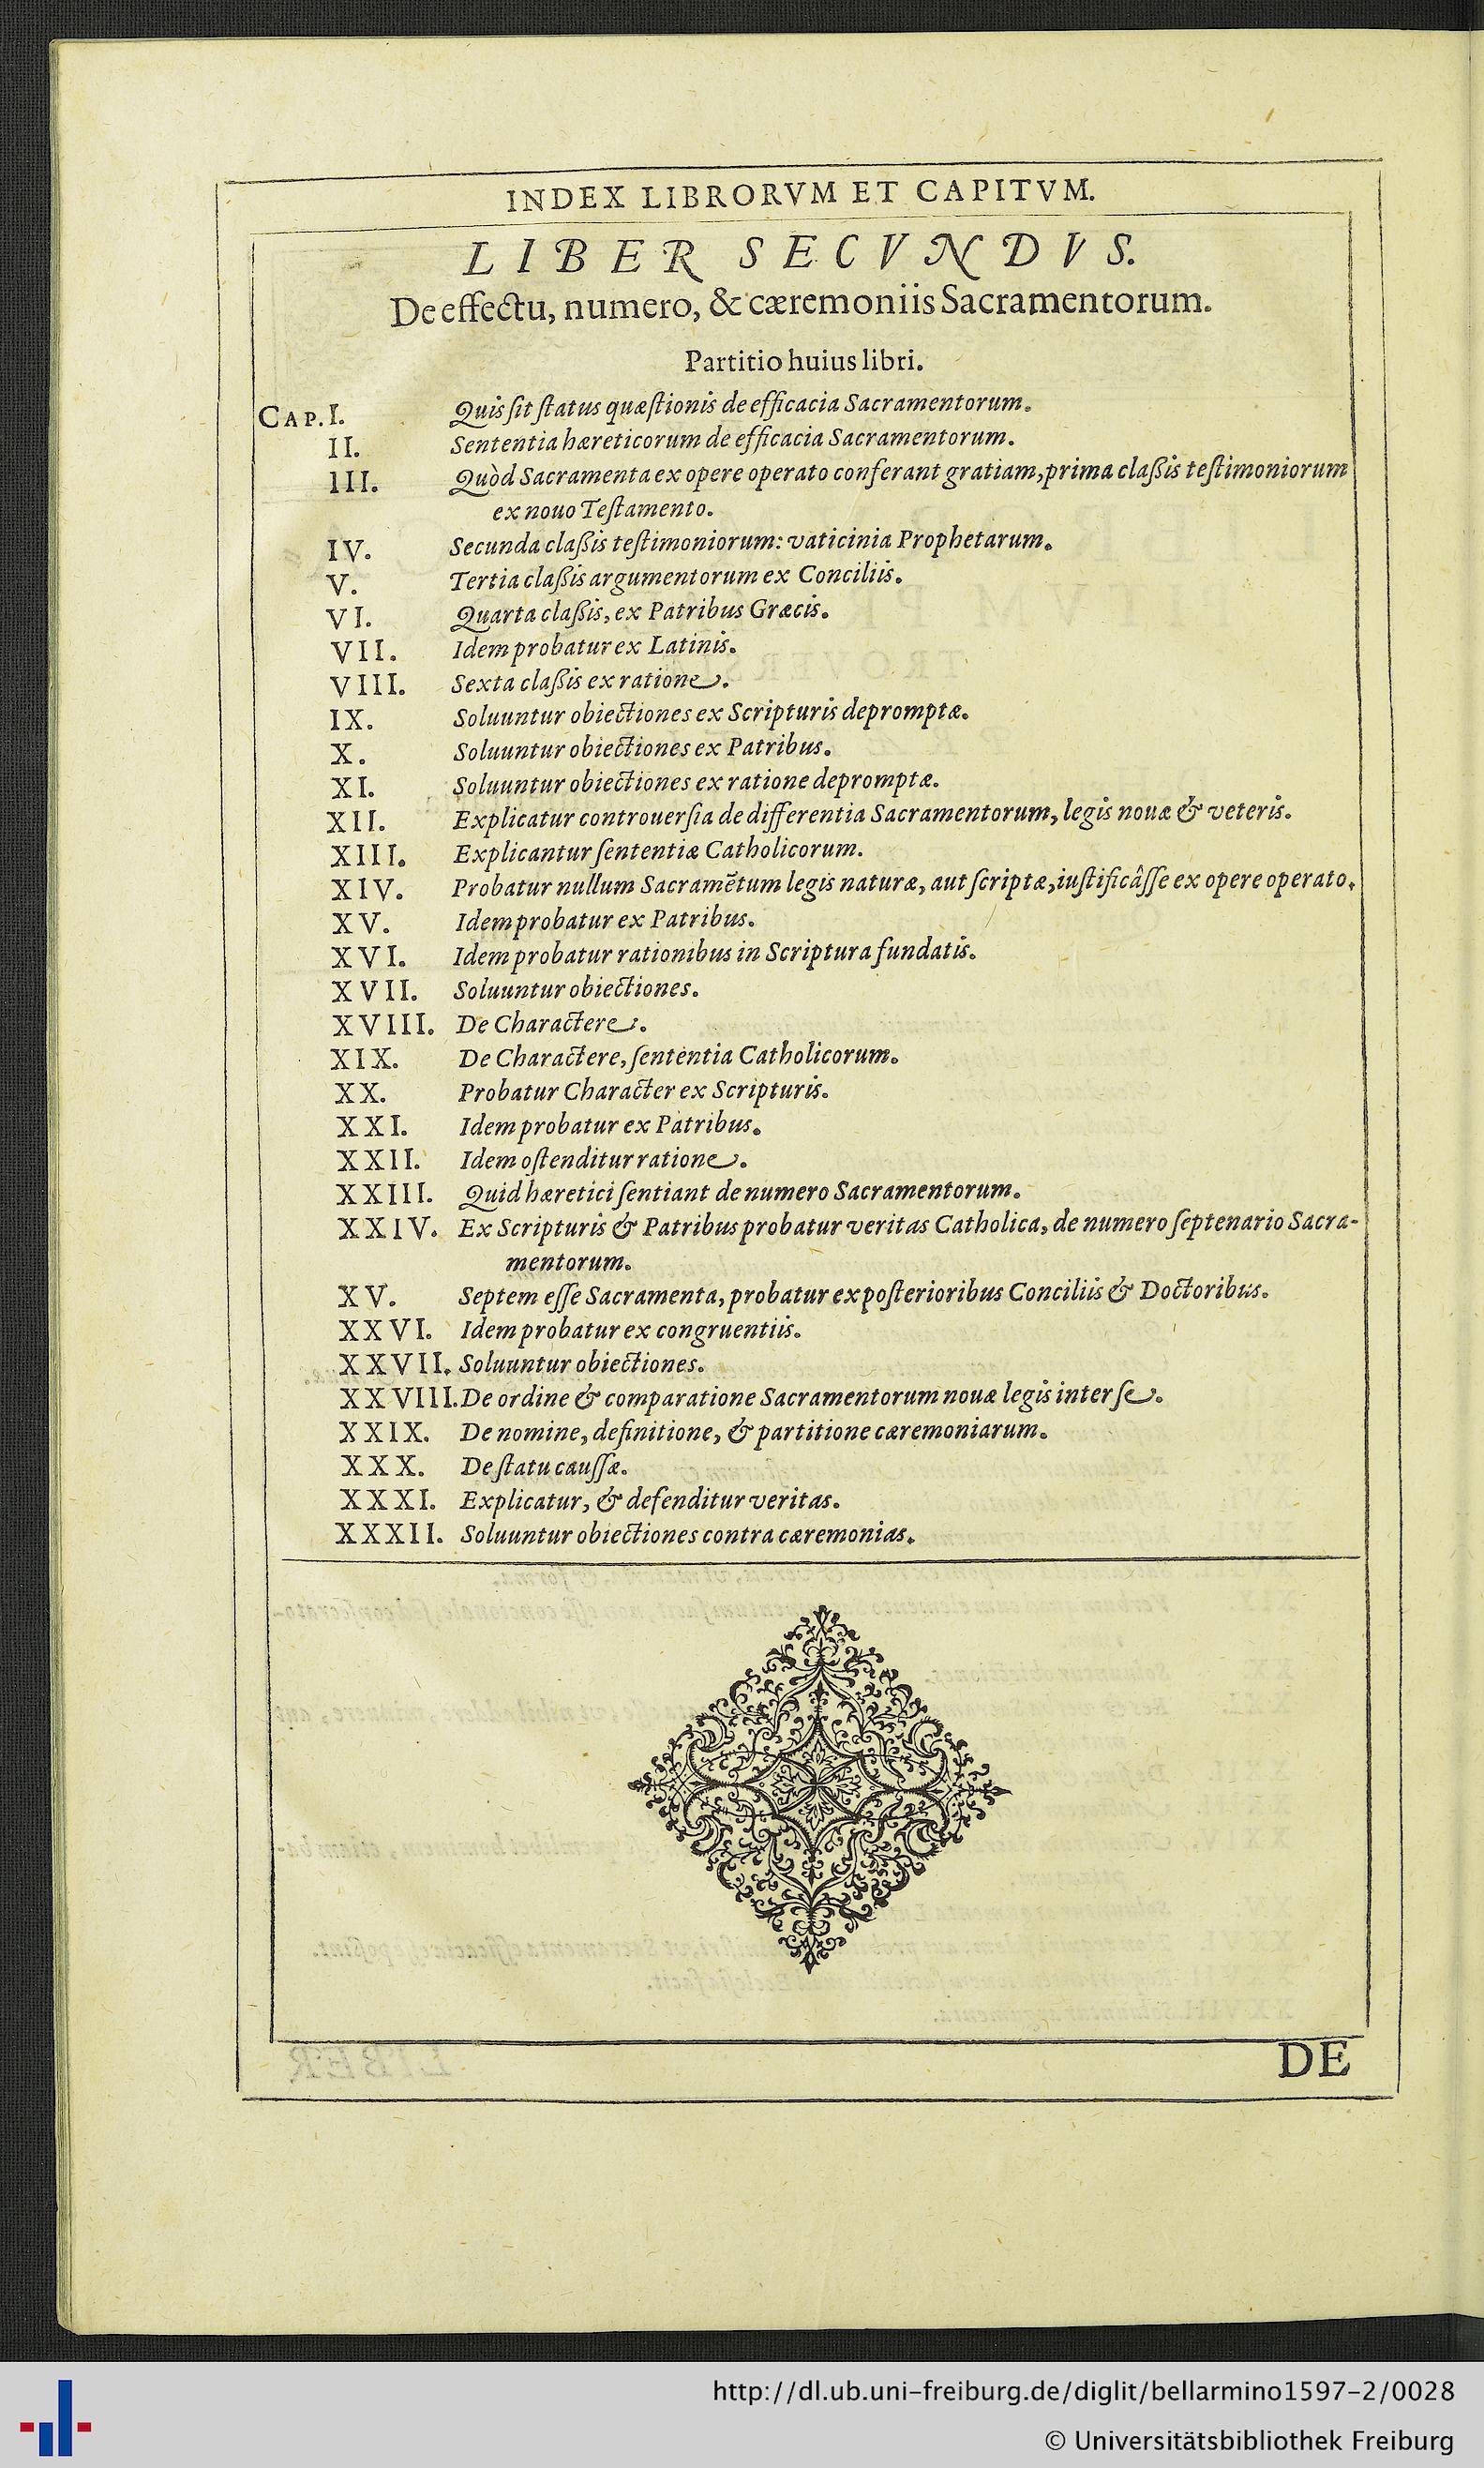 INDEX LIBRORVM ET CAPITVM.
LIBER SECVNDVS.
De effectu, numero, & cæremoniis Sacramentorum.
Partitio huius libri.
CAP. I. Quis ſit ſtatus quæſtionis de efficacia Sacramentorum.
II. Sententia hæreticorum de efficacia Sacramentorum.
III. Quòd Sacramenta ex opere operato conferant gratiam, prima claßis teſtimoniorum
ex nouo Teſtamento.
IV. Secunda claßis teſtimoniorum: vaticinia Prophetarum.
V. Tertia claßis argumentorum ex Conciliis.
VI. Quarta claßis, ex Patribus Græcis.
VII. Idem probatur ex Latinis.
VIII. Sexta claßis ex ratione.
IX. Soluuntur obiectiones ex Scripturis depromptæ.
X. Soluuntur obiectiones ex Patribus.
XI. Soluuntur obiectiones ex ratione depromptæ.
XII. Explicatur controuerſia de differentia Sacramentorum, legis nouæ & veteris.
XIII. Explicantur ſententiæ Catholicorum.
XIV. Probatur nullum Sacramẽtum legis naturæ, aut ſcriptæ, iuſtificâſſe ex opere operato.
XV. Idem probatur ex Patribus.
XVI. Idem probatur rationibus in Scriptura fundatis.
XVII. Soluuntur obiectiones.
XVIII. De Charactere.
XIX. De Charactere, ſententia Catholicorum.
XX. Probatur Character ex Scripturis.
XXI. Idem probatur ex Patribus.
XXII. Idem oſtenditur ratione.
XXIII. Quid hæretici ſentiant de numero Sacramentorum.
XXIV. Ex Scripturis & Patribus probatur veritas Catholica, de numero ſeptenario Sacra-
mentorum.
XV. Septem eſſe Sacramenta, probatur ex poſterioribus Conciliis & Doctoribus.
XXVI. Idem probatur ex congruentiis.
XXVII. Soluuntur obiectiones.
XXVIII. De ordine & comparatione Sacramentorum nouæ legis inter ſe.
XXIX. De nomine, definitione, & partitione cæremoniarum.
XXX. De ſtatu cauſſæ.
XXXI. Explicatur, & defenditur veritas.
XXXII. Soluuntur obiectiones contra cæremonias.
DE
http://dl.ub.uni-freiburg.de/diglit/bellarmino1597-2/0028
© Universitätsbibliothek Freiburg